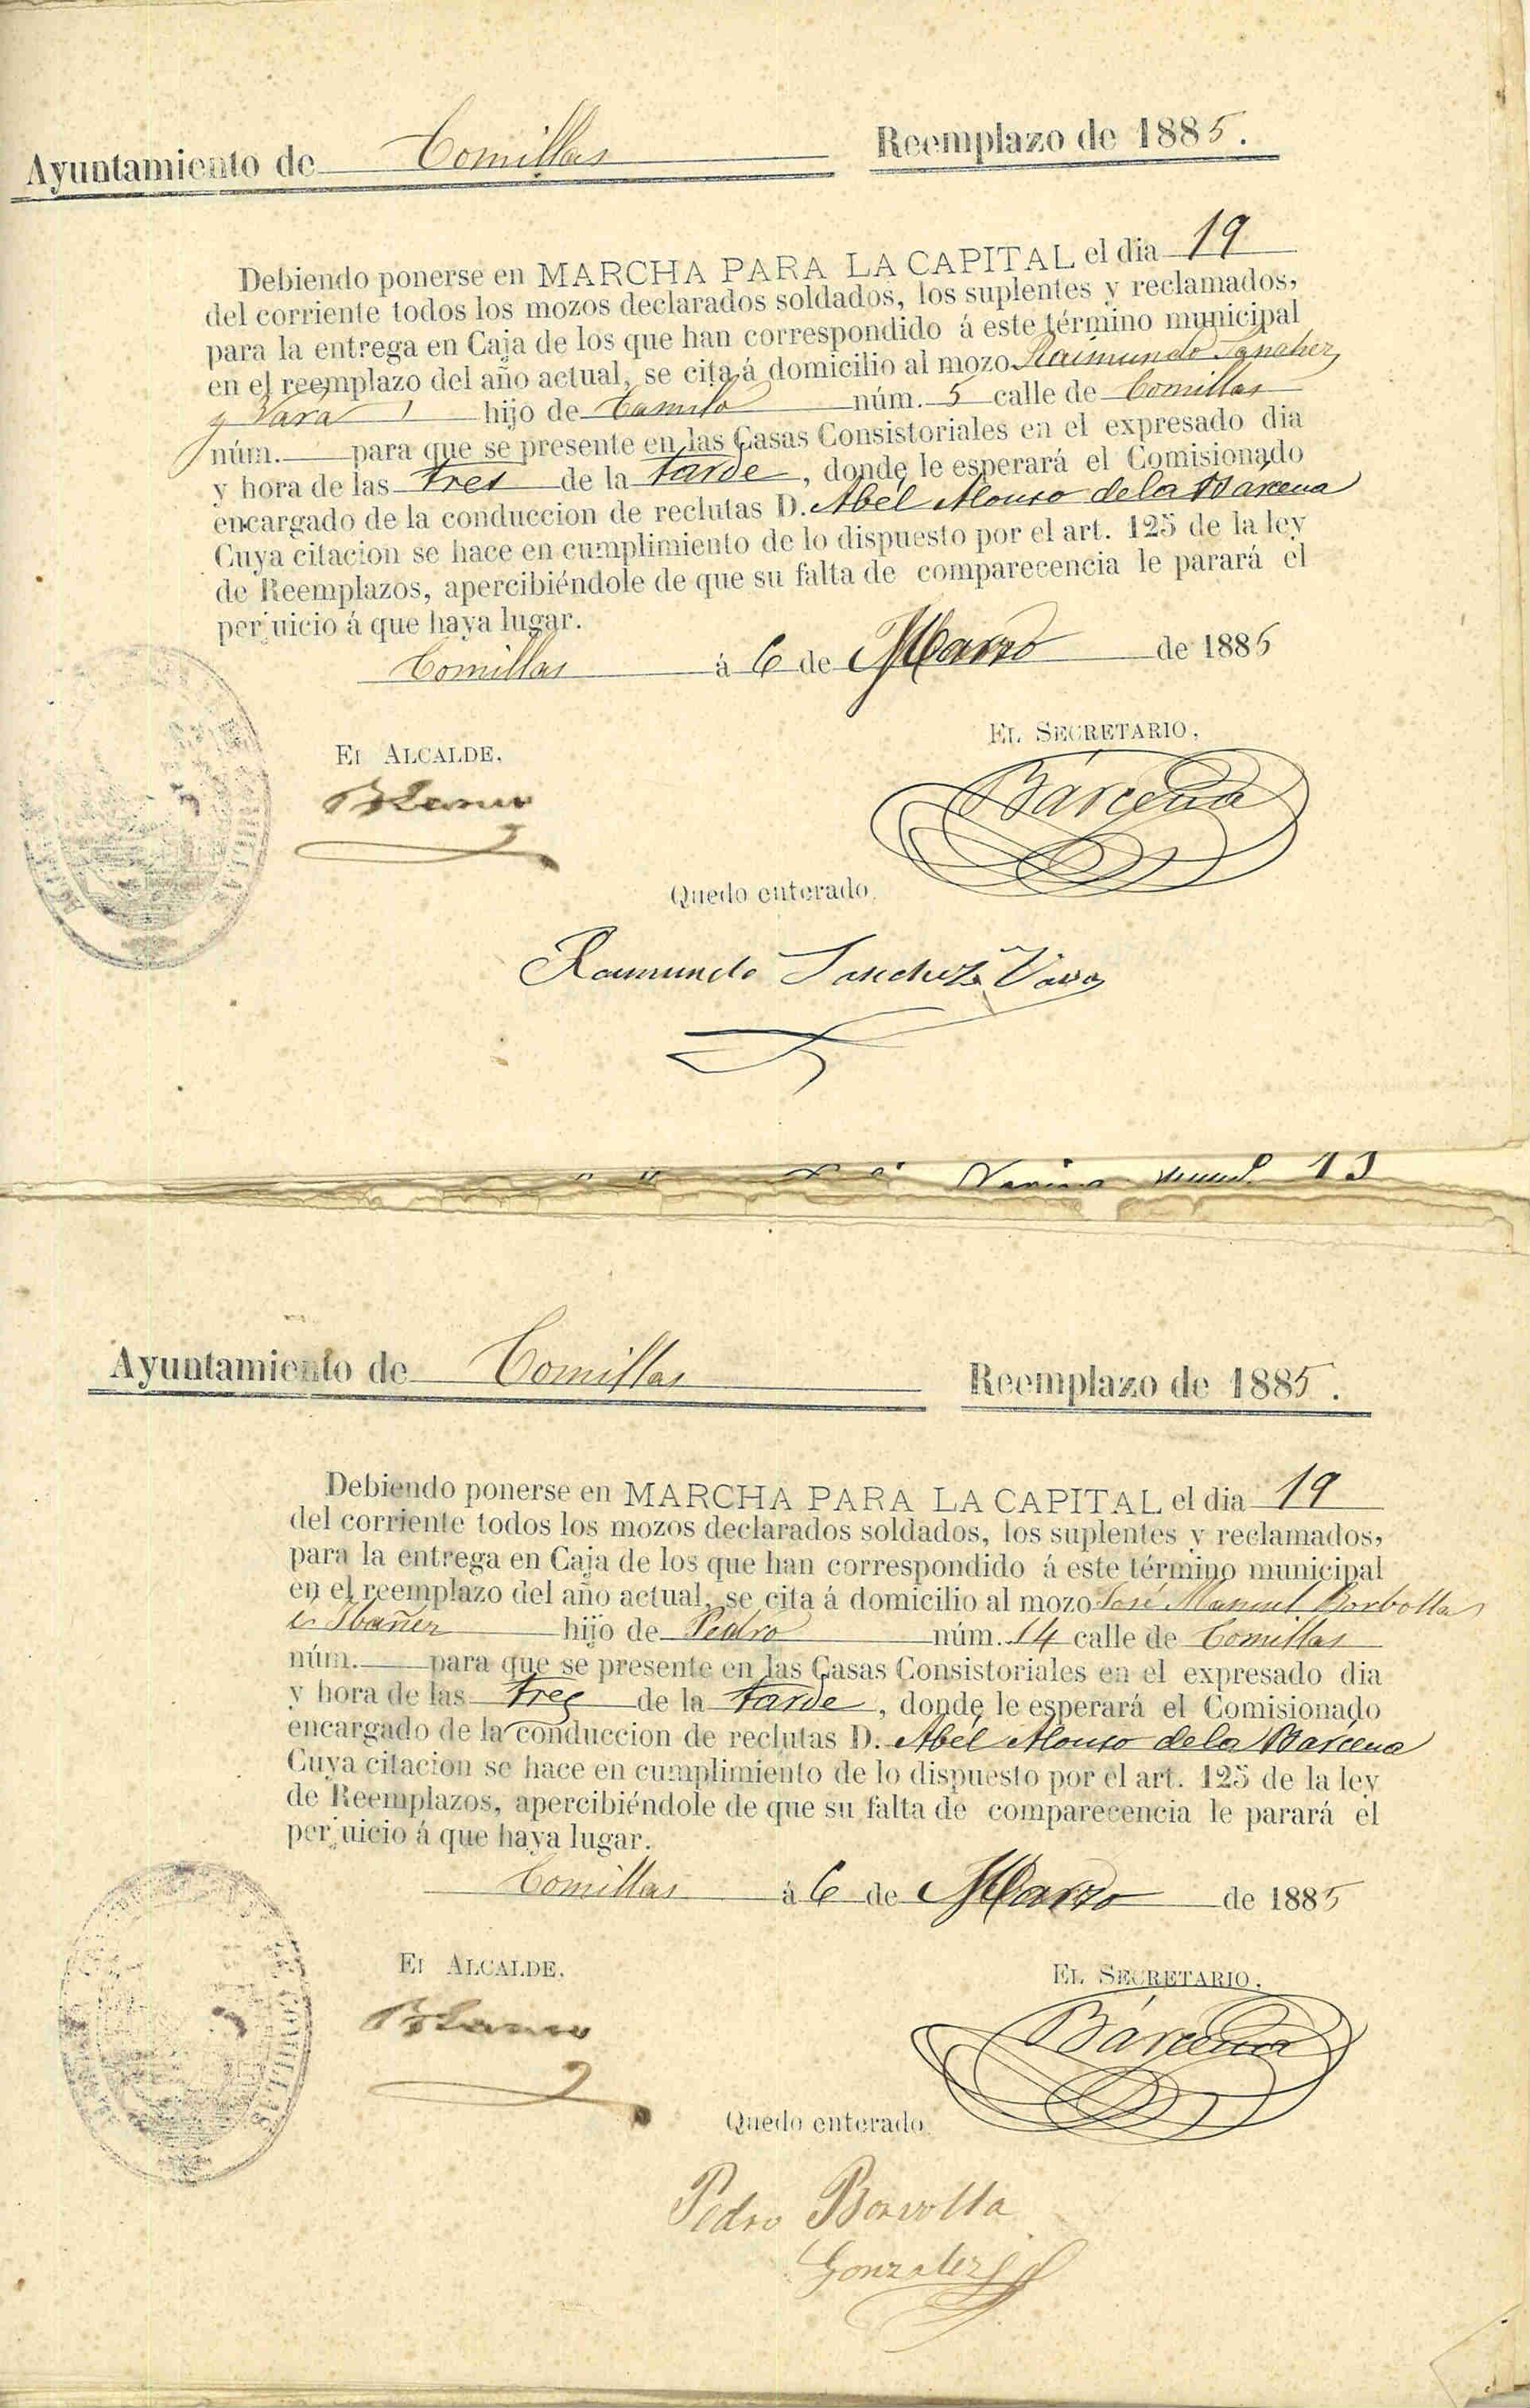 Ayuntamiento de Comillas Reemplazo de 1885.
Debiendo ponerse en MARCHA PARA LA CAPITAL el dia 19
del corriente todos los mozos declarados soldados, los suplentes y reclamados,
para la entrega en Caja de los que han correspondido á este término municipal
en el reemplazo del año actual, se cita á domicilio al mozo Raimundo Sanchez
y Vara hijo de Camilo núm. 5 calle de Comillas
núm. para que se presente en las Casas Consistoriales en el expresado dia
y hora de las tres de la tarde, donde le esperará el Comisionado
encargado de la conduccion de reclutas D. Abel Alonso de la Bárcena
Cuya citacion se hace en cumplimiento de lo dispuesto por el art. 125 de la ley
de Reemplazos, apercibiéndole de que su falta de comparecencia le parará el
perjuicio á que haya lugar.
Comillas á 6 de Marzo de 1885
El ALCALDE,
EL SECRETARIO,
Bárcena
Quedo enterado,
Raimundo Sanchez Vara
13
Ayuntamiento de Comillas Reemplazo de 1885.
Debiendo ponerse en MARCHA PARA LA CAPITAL el dia 19
del corriente todos los mozos declarados soldados, los suplentes y reclamados,
para la entrega en Caja de los que han correspondido á este término municipal
en el reemplazo del año actual, se cita á domicilio al mozo José Manuel Borbolla
é Ibañez hijo de Pedro núm. 14 calle de Comillas
núm. para que se presente en las Casas Consistoriales en el expresado dia
y hora de las tres de la tarde, donde le esperará el Comisionado
encargado de la conduccion de reclutas D. Abel Alonso de la Bárcena
Cuya citacion se hace en cumplimiento de lo dispuesto por el art. 125 de la ley
de Reemplazos, apercibiéndole de que su falta de comparecencia le parará el
perjuicio á que haya lugar.
Comillas á 6 de Marzo de 1885
El ALCALDE,
EL SECRETARIO,
Bárcena
Quedo enterado,
Pedro Borvolla
Gonzalez